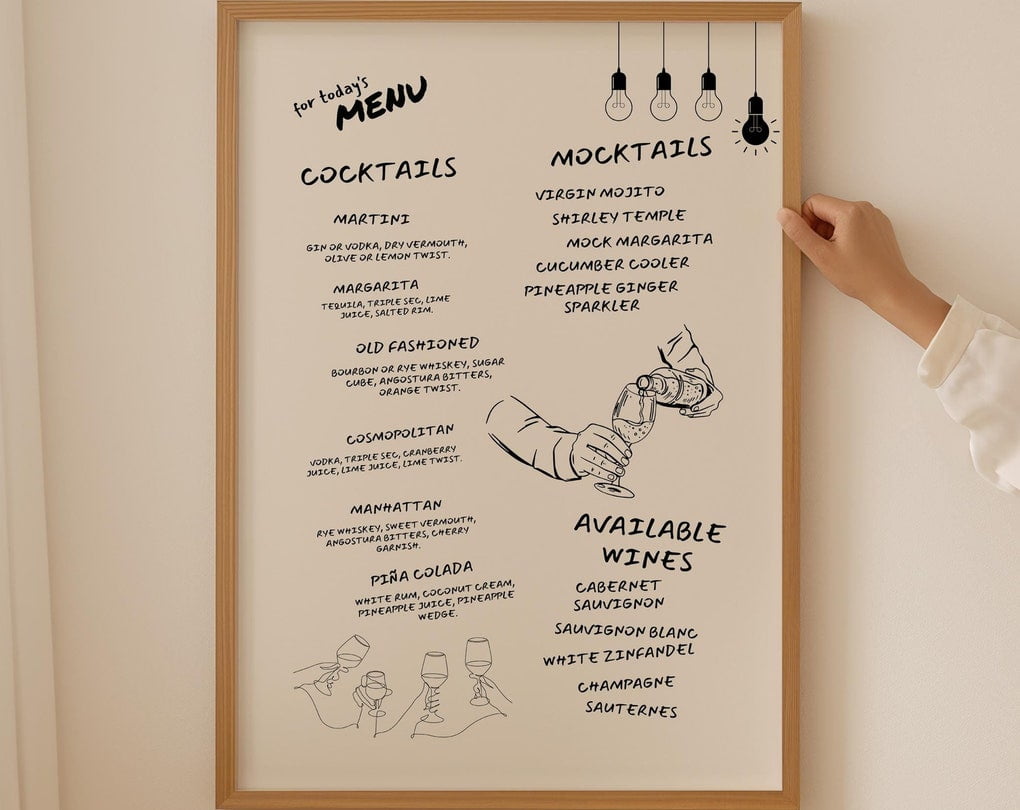 for today's
MENU
COCKTAILS
MARTINI
GIN OR VODKA, DRY VERMOUTH,
OLIVE OR LEMON TWIST.
MARGARITA
TEQUILA, TRIPLE SEC, LIME
JUICE, SALTED RIM.
OLD FASHIONED
BOURBON OR RYE WHISKEY, SUGAR
CUBE, ANGOSTURA BITTERS,
ORANGE TWIST.
COSMOPOLITAN
VODKA, TRIPLE SEC, CRANBERRY
JUICE, LIME JUICE, LIME TWIST.
MANHATTAN
RYE WHISKEY, SWEET VERMOUTH,
ANGOSTURA BITTERS, CHERRY
GARNISH.
PIÑA COLADA
WHITE RUM, COCONUT CREAM,
PINEAPPLE JUICE, PINEAPPLE
WEDGE.
MOCKTAILS
VIRGIN MOJITO
SHIRLEY TEMPLE
MOCK MARGARITA
CUCUMBER COOLER
PINEAPPLE GINGER
SPARKLER
AVAILABLE
WINES
CABERNET
SAUVIGNON
SAUVIGNON BLANC
WHITE ZINFANDEL
CHAMPAGNE
SAUTERNES